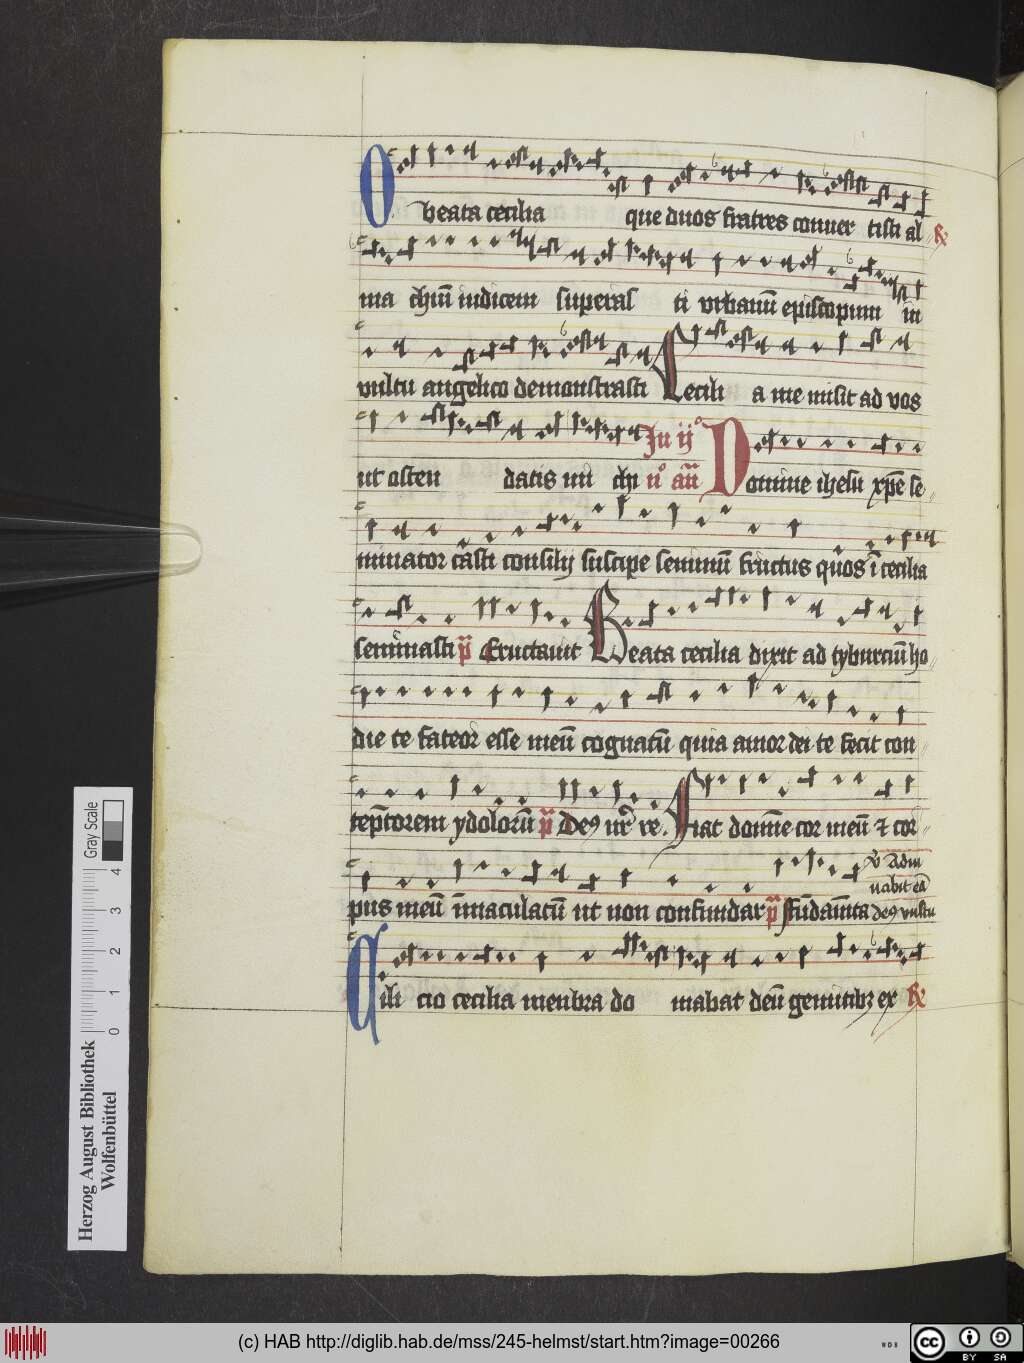 O beata cecilia que duos fratres conuer tisti al R
ma chiu᷑ iudicem superas ti vrbanu᷑ episcopum in
vultu angelico demonstrasti Cecili a me misit ad vos
ut osten datis mi chi In ij° n° an᷑ Domine ihesu xp̅e se
minator casti consilij suscipe seminu᷑ fructus quos i᷑ cecilia
seminasti p᷑ Eructauit Beata cecilia dixit ad tyburciu᷑ ho
die te fateor esse meu᷑ cognatu᷑ quia amor dei te fecit con
tep᷑torem ydoloru᷑ p᷑ Deꝰ nr᷑ re. Fiat domi᷑e cor meu᷑ ⁊ cor
v᷑ Adiu
uabit ea᷑
pus meu᷑ i᷑maculatu᷑ ut non confundar p᷑ fu᷑dam᷑ta deꝰ vultu
Cili cio cecilia menbra do mabat deu᷑ gemitibꝫ ex R
Gray Scale
0 1 2 3 4
Herzog August Bibliothek
Wolfenbüttel
(c) HAB http://diglib.hab.de/mss/245-helmst/start.htm?image=00266
WDB
cc
BY SA